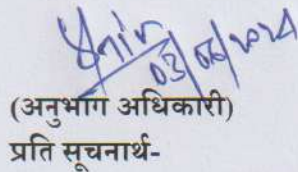 03/06/2024
(अनुभाग अधिकारी)
प्रति सूचनार्थ-